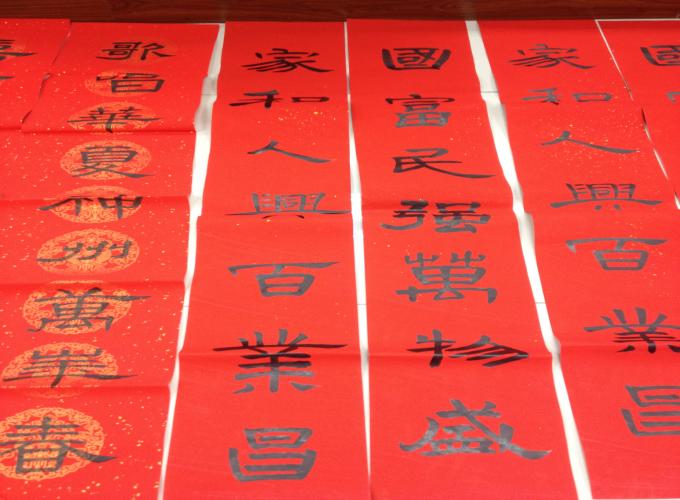 國
家和人興百業昌
國富民强萬物盛
家和人興百業昌
歌唱華夏神州萬年春